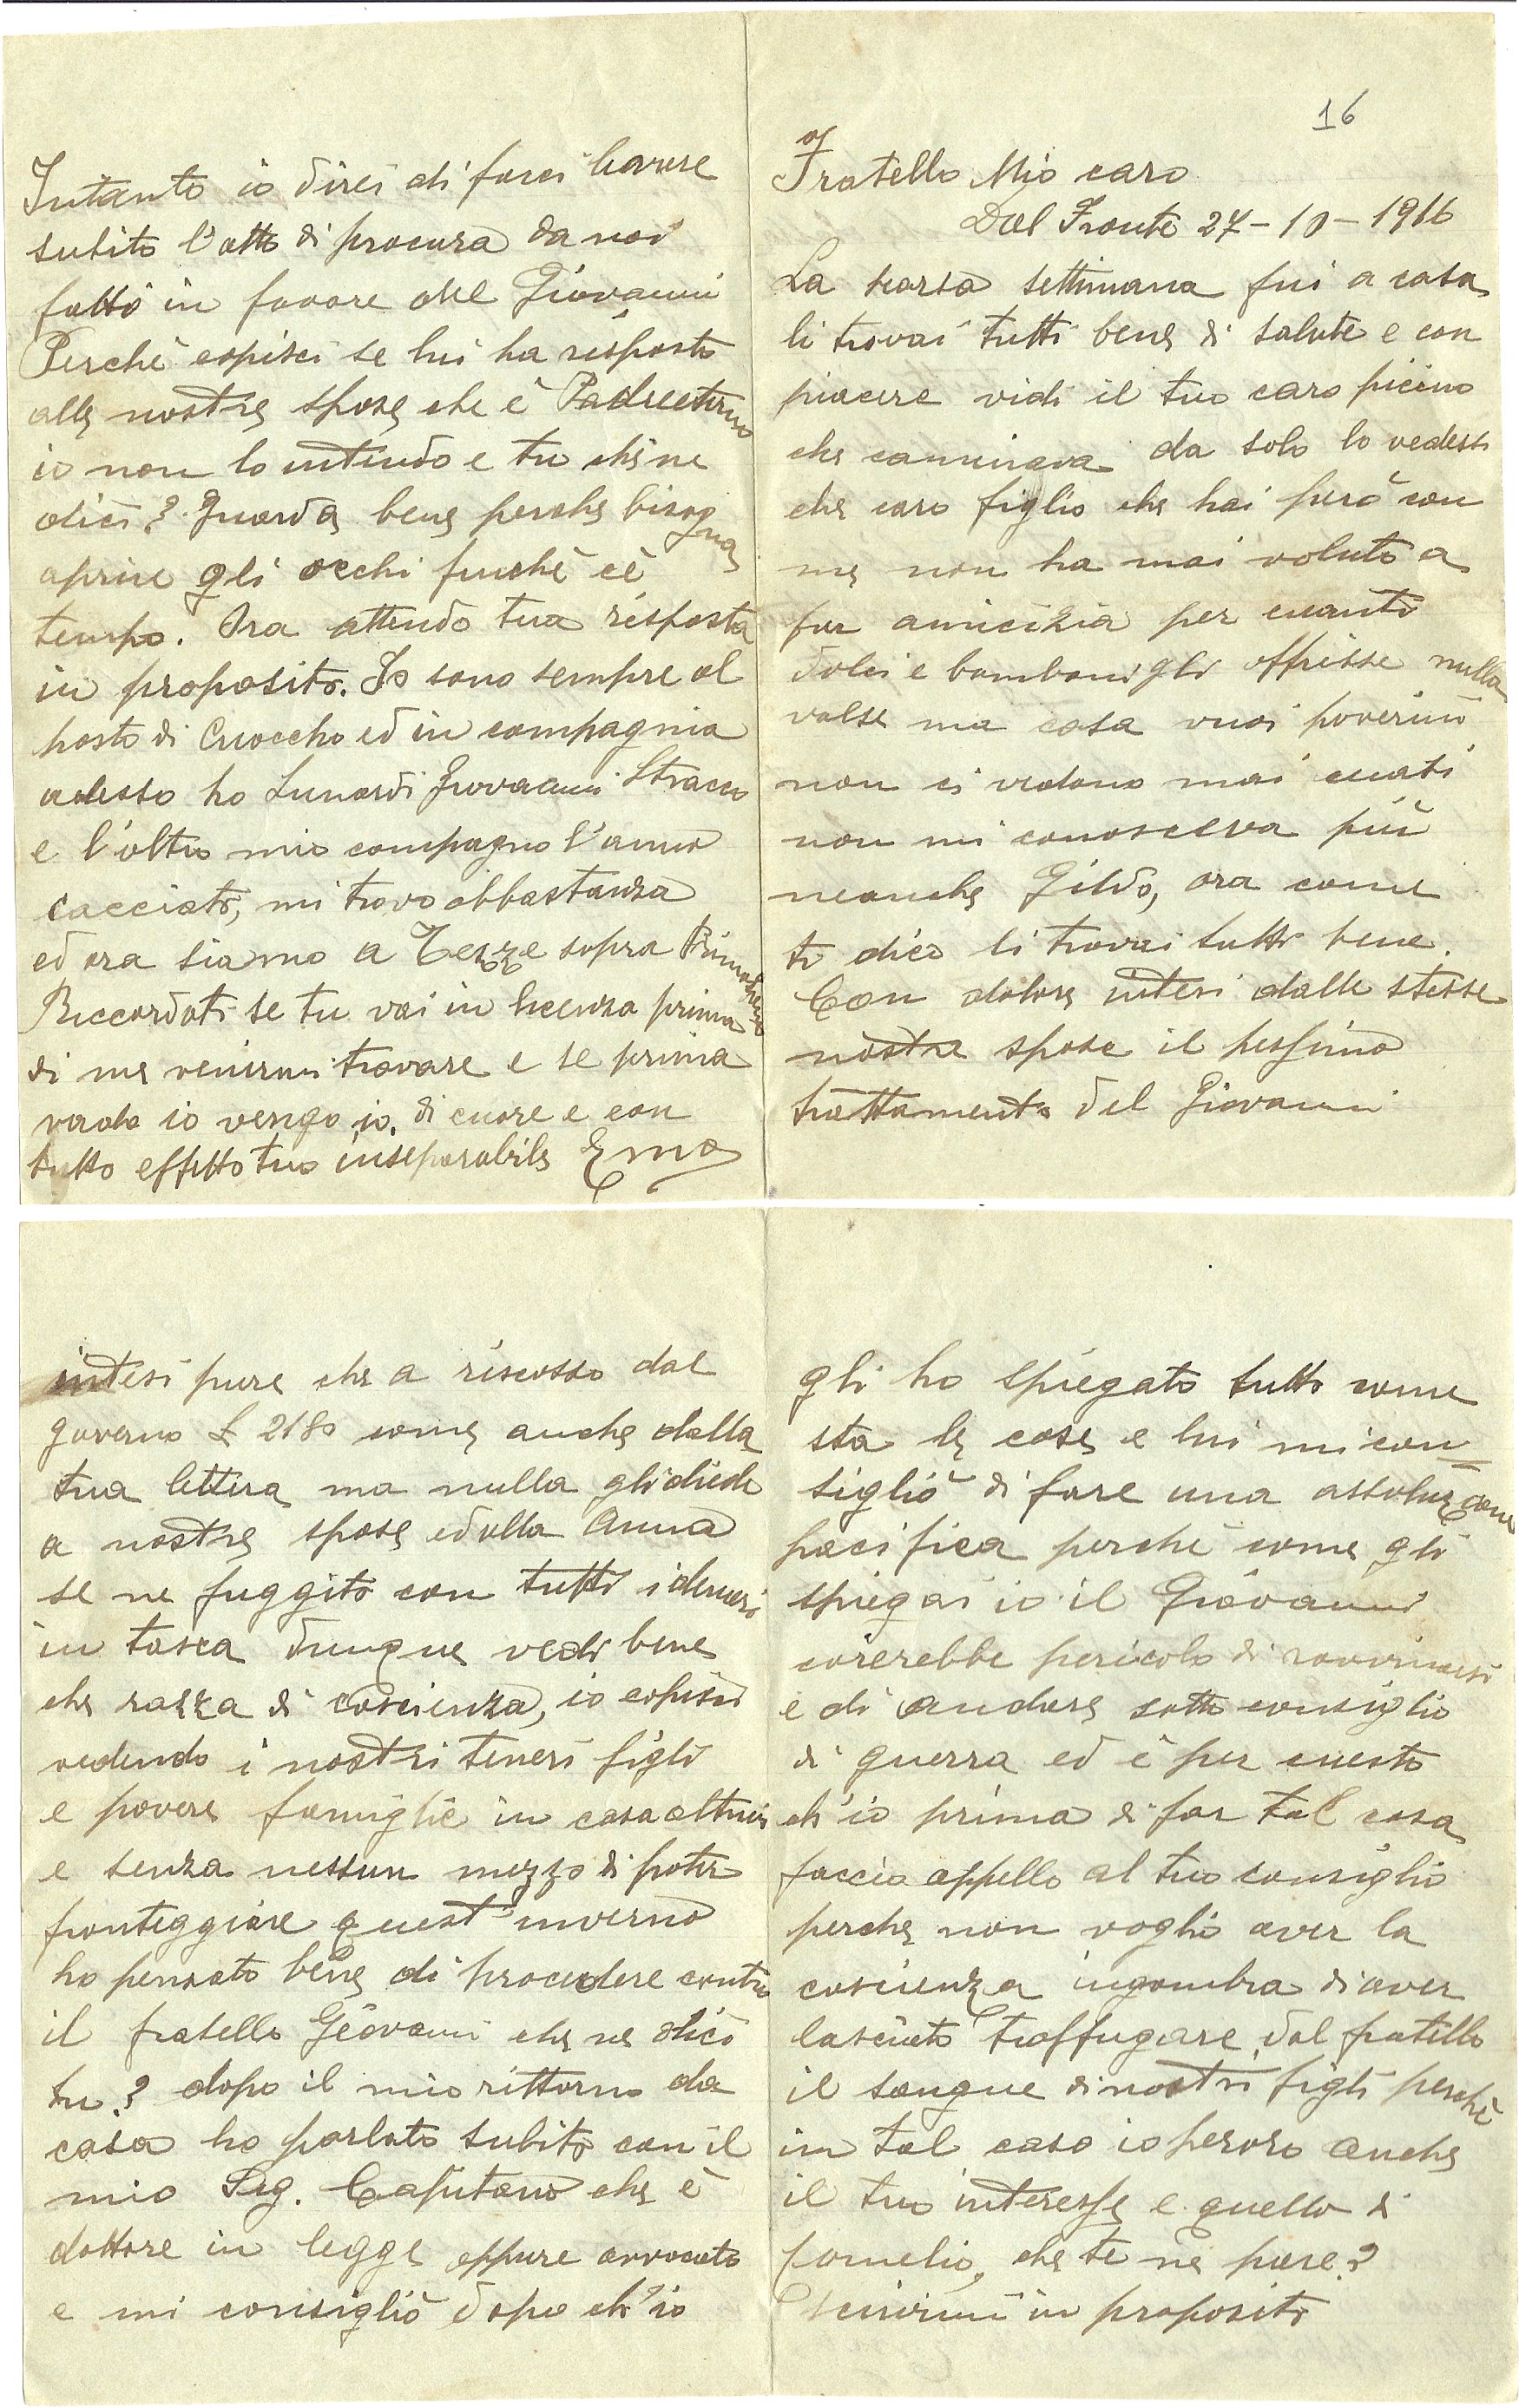 16
Fratello Mio caro
Dal Fronte 27-10-1916
La scorsa settimana fui a casa
li trovai tutti bene di salute e con
piacere vidi il tuo caro piccino
che caminava da solo lo vedessi
che caro figlio che hai però con
me non ha mai voluto a
far amicizia per cuanti
dolci e bomboni gli offrisse nulla
valse ma cosa vuoi poverini
non ci vedono mai cuasi
non mi conosceva più
neanche Gildo, ora come
ti dico li trovai tutti bene.
Con dolore intesi dalle stesse
nostre spose il pessimo
trattamento del Giovanni
intesi pure che a riscosso dal
governo £ 2180 come anche dalla
tua lettera ma nulla gli diede
a nostre spose ed alla Anna
se ne fuggito con tutti i denari
in tasca dunque vedi bene
che razza di coscienza, io capisci
vedendo i nostri teneri figli
e povere famiglie in casa altrui
e senza nessun mezzo di poter
fronteggiare quest'inverno
ho pensato bene di procedere contro
il fratello Giovanni che ne dici
tu? dopo il mio rittorno da
casa ho parlato subito con il
mio Sig. Capitano che è
dottore in legge oppure avvocato
e mi consigliò dopo ch'io
gli ho spiegato tutto come
sta le cose e lui mi con=
sigliò di fare una assoluzione
pacifica perchè come gli
spiegai io il Giovanni
corerebbe pericolo di rovinarsi
e di andare sotto consiglio
di guerra ed è per cuesto
ch'io prima di far tal cosa
faccio appello al tuo consiglio
perche non voglio aver la
coscienza ingombra di aver
lasciato traffugare dal fratello
il sangue di nostri figli perchè
in tal caso io peroro anche
il tuo interesse e quello di
Cornelio, che te ne pare?
Scrivimi in proposito
Intanto io direi di farci levare
subito l'atto di procura da noi
fatto in favore del Giovanni
Perchè capisci se lui ha risposto
alle nostre spose che è Padreeterno
io non lo intendo e tu che ne
dici? Guarda bene perche bisogna
aprire gli occhi finchè cè
tempo. Ora attendo tua risposta
in proposito. Io sono sempre al
posto di Cuoccho ed in compagnia
adesso ho Lunardi Giovanni Stracco
e l'altro mio compagno l'anno
cacciato, mi trovo abbastanza
ed ora siamo a Tezze sopra Primolano
Riccordati se tu vai in licenza prima
di me venirmi trovare e se prima
vado io vengo io. di cuore e con
tutto effetto tuo inseparabile Emo